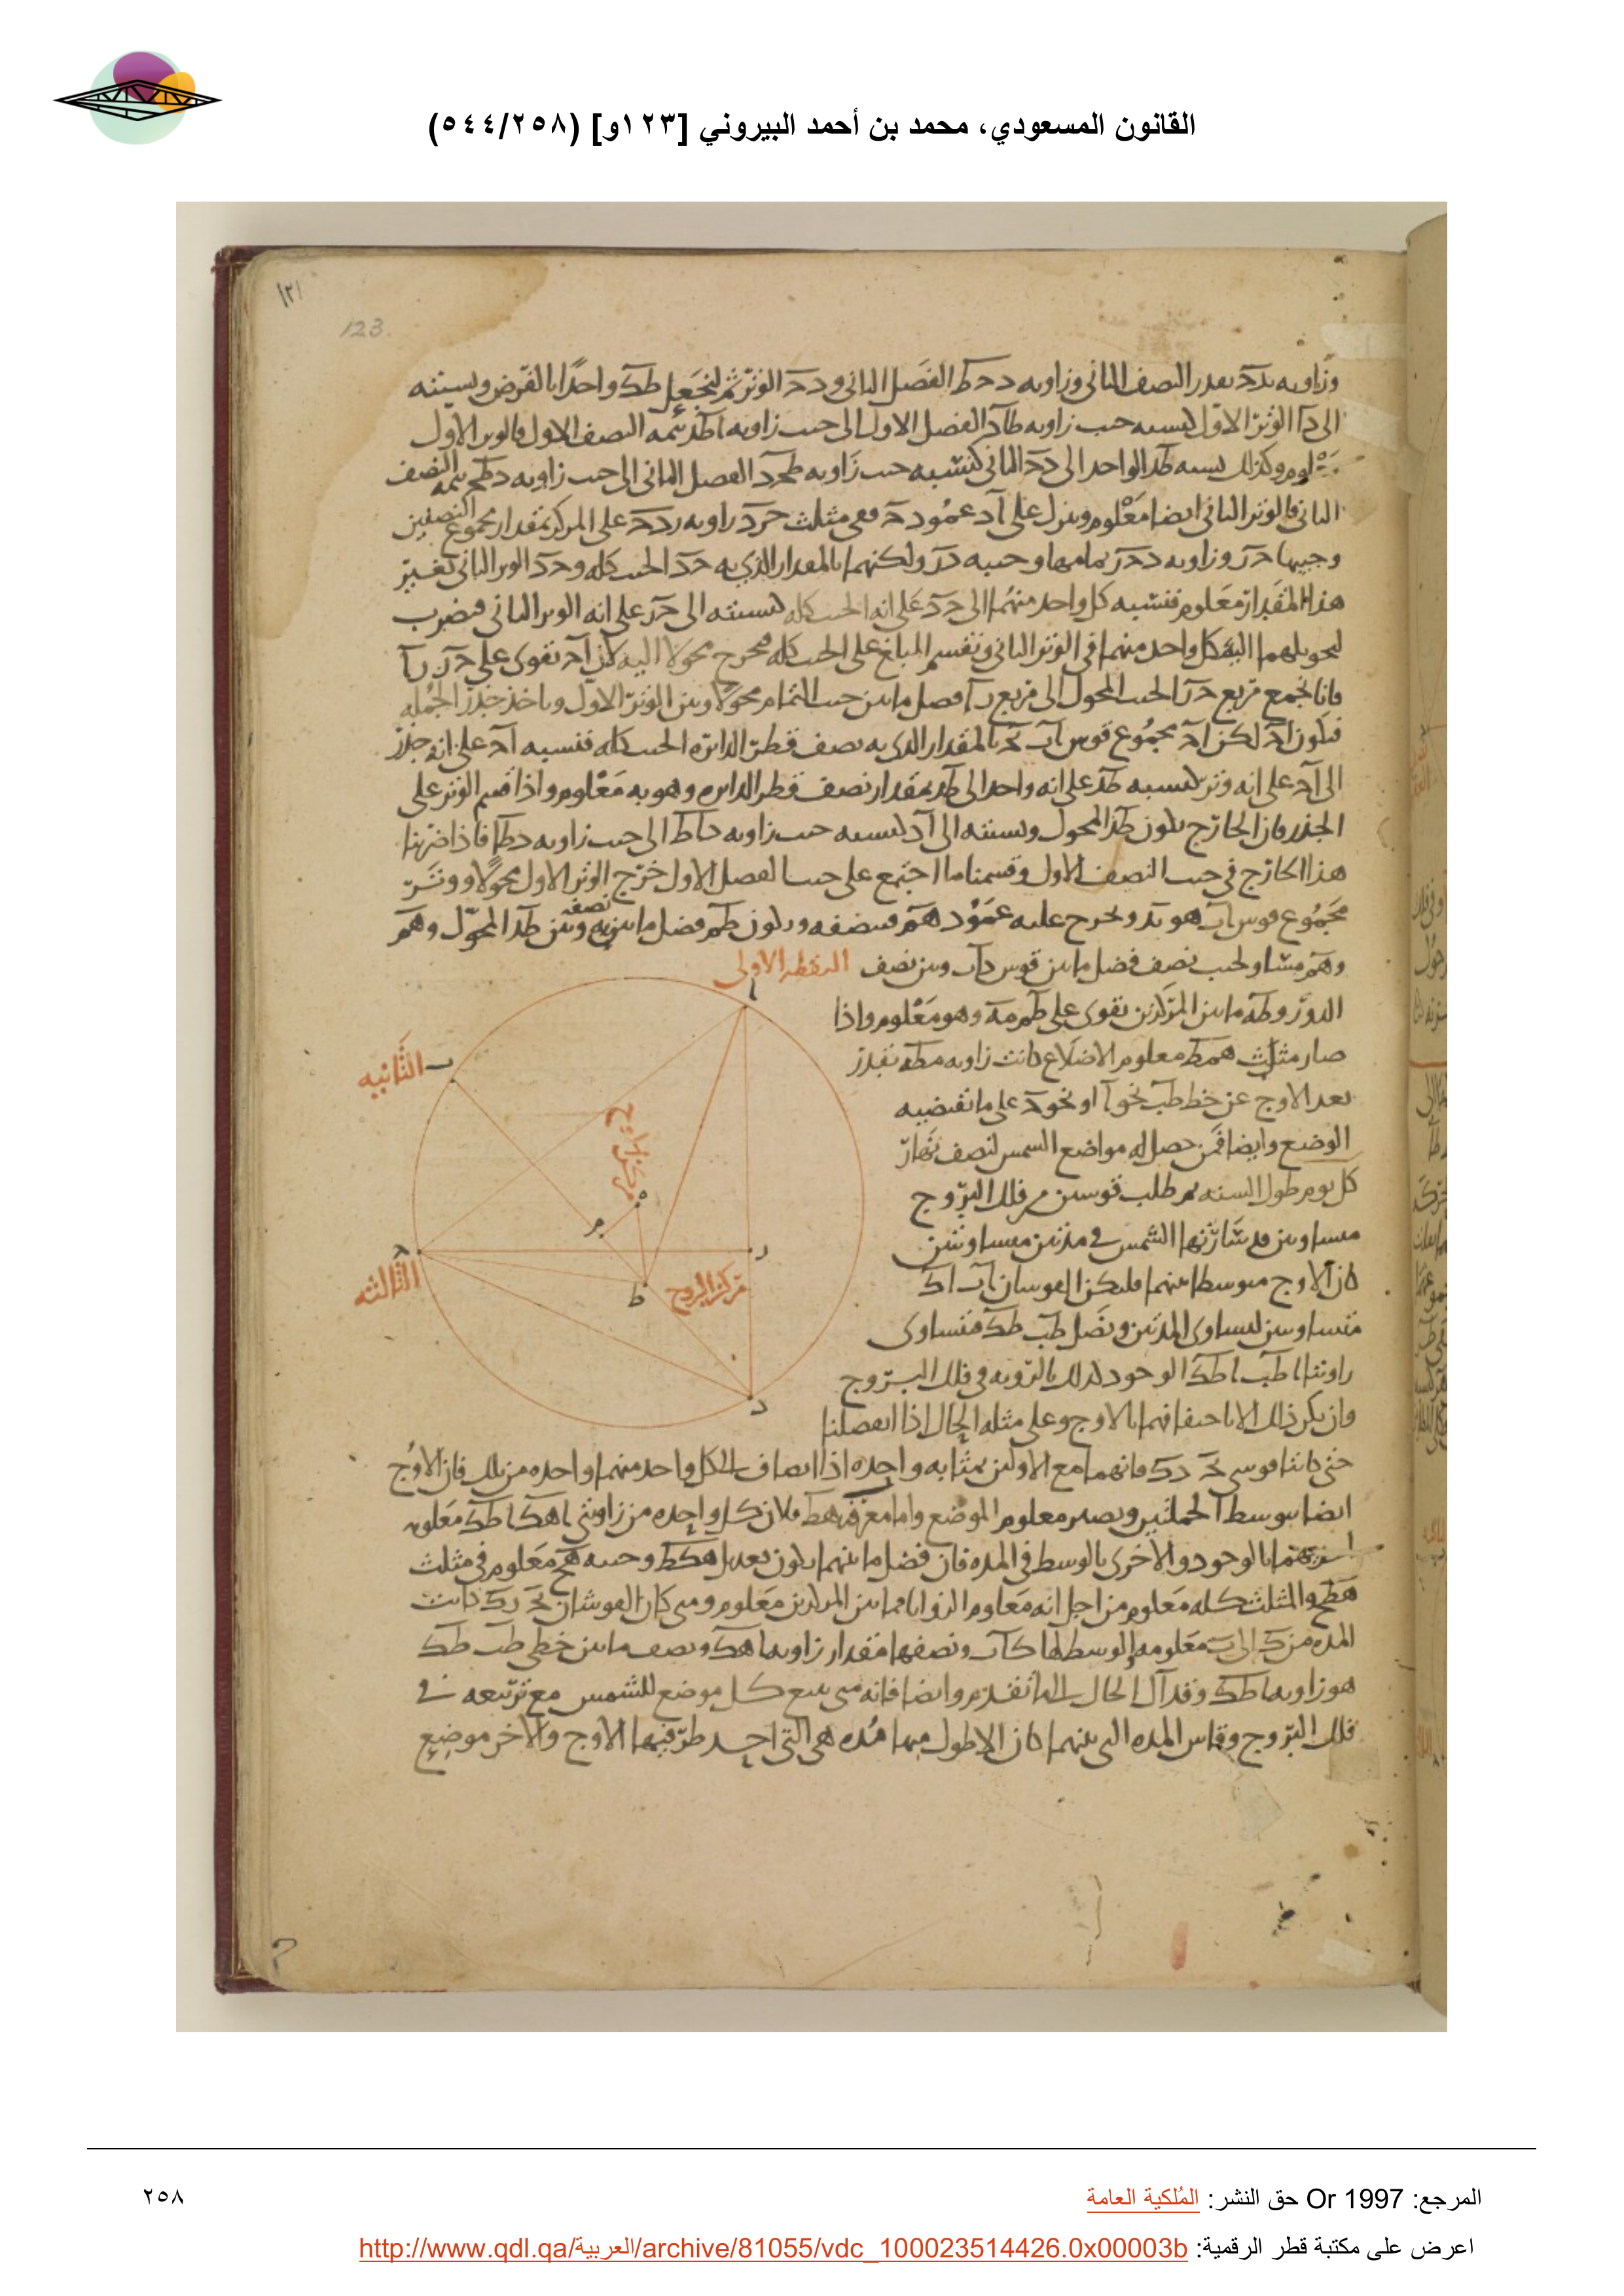 القانون المسعودي، محمد بن أحمد البيروني [١٢٣و] (٥٤٤/٢٥٨)
١٢١
123.
الى دا الوتر الاول كنسبه جيب زاويه طاد الفصل الاول الى جيب زاويه اطد تتمه النصف الاول فالوتر الاول
وكذلك نسبه طد الواحد الى دح الثانى كنسبه جيب زاويه طحد الفصل الثانى الى جيب زاويه دطح تتمه النصف
الثانى فالوتر الثانى ايضا معلوم وننزل على اد عمود حر ففى مثلث حرد زاويه ردح على المركز بمقدار مجموع النصفين
وجيبها حر وزاويه دحر تمامها وجيبه در ولكنهما بالمقدار الذى به حد الجيب كله وحد الوتر الثانى بغير
هذا المقدار معلوم فنسبه كل واحد منهما الى حد على انه الجيب كله كنسبته الى حد على انه الوتر الثانى فنضرب
لتحويلهما اليه كل واحد منهما فى الوتر الثانى ونقسم المبلغ على الجيب كله فيخرج محولا اليه لكن اح تقوى على حر را
فانا نجمع مربع حر الجيب المحول الى مربع را فضل ما بين جيب التمام محولا وبين الوتر الاول وناخذ جذر الجمله
فيكون اح لكن اح مجموع قوس اب بح بالمقدار الذى به نصف قطر الدائره الجيب كله فنسبه اح على انه جذر
الى اح على انه وتر كنسبه طد على انه واحد الى طد بمقدار نصف قطر الدائره وهو به معلوم واذا قسم الوتر على
الجذر فان الخارج يكون طد المحول ونسبته الى اد كنسبه جيب زاويه داط الى جيب زاويه دطا فاذا ضربنا
هذا الخارج فى جيب النصف الاول وقسمنا ما اجتمع على جيب الفصل الاول خرج الوتر الاول محولا ووتر
مجموع قوس اب هو بد ونخرج عليه عمود هم فينصفه ويكون طم فضل ما بين نصفه وبين طد المحول وهم
وهم مساو لجيب نصف فضل ما بين قوس داب وبين نصف
الدور وطه ما بين المركزين يقوى على طم مه وهو معلوم واذا
صار مثلث همط معلوم الاضلاع كانت زاويه مطه بقدر
بعد الاوج عن خط طب نحو ا او نحو د على ما تقتضيه
الوضع وايضا فمن حصل له مواضع الشمس لنصف نهار
كل يوم طول السنه ثم طلب قوسين من فلك البروج
متساويتين قد سارتهما الشمس فى مدتين متساويتين
كان الاوج متوسطا بينهما فليكن القوسان اب اك
متساويتين لتساوى المدتين ونصل طب طك فتتساوى
زاويتا اطب اطك الوجود لذلك بالرويه فى فلك البروج
وان يكن ذلك الا باحتفافهما بالاوج وعلى مثله الحال اذا انفصلتا
النقطه الاولى
ا
ب الثانيه
ح الثالثه
مركز الاوج
مركز البروج
ه
م
ر
ط
د
حتى كانتا قوسى بح دك فانهما مع الاولين بمثابه واحده اذا انضاف الى كل واحد منهما واحده من تلك فان الاوج
ايضا يتوسط الجملتين ويصير معلوم الموضع واما معرفه هط فلان كل واحده من زاويتى اهك اطك معلومه
بالوجود والاخرى بالوسط فى المده فان فضل ما بينهما يكون تعديل هكط وجيبه هح معلوم فى مثلث
هطح والمثلث كله معلوم من اجل انه معلوم الزوايا فما بين المركزين معلوم ومتى كان القوسان بح دك كانت
المده من ك الى ب معلومه والوسط لها كاب ونصفها مقدار زاويه اهك ونصف ما بين خطى طب طك
هو زاويه اطك وقد ال الحال الى ما تقدم وايضا فانه متى تتبع كل موضع للشمس مع تربيعه فى
فلك البروج وقاس المده التى بينهما كان الاطول منها مده هى التى احد طرفيها الاوج والاخر موضع
المرجع: Or 1997 حق النشر: المُلكية العامة
٢٥٨
اعرض على مكتبة قطر الرقمية: http://www.qdl.qa/العربية/archive/81055/vdc_100023514426.0x00003b